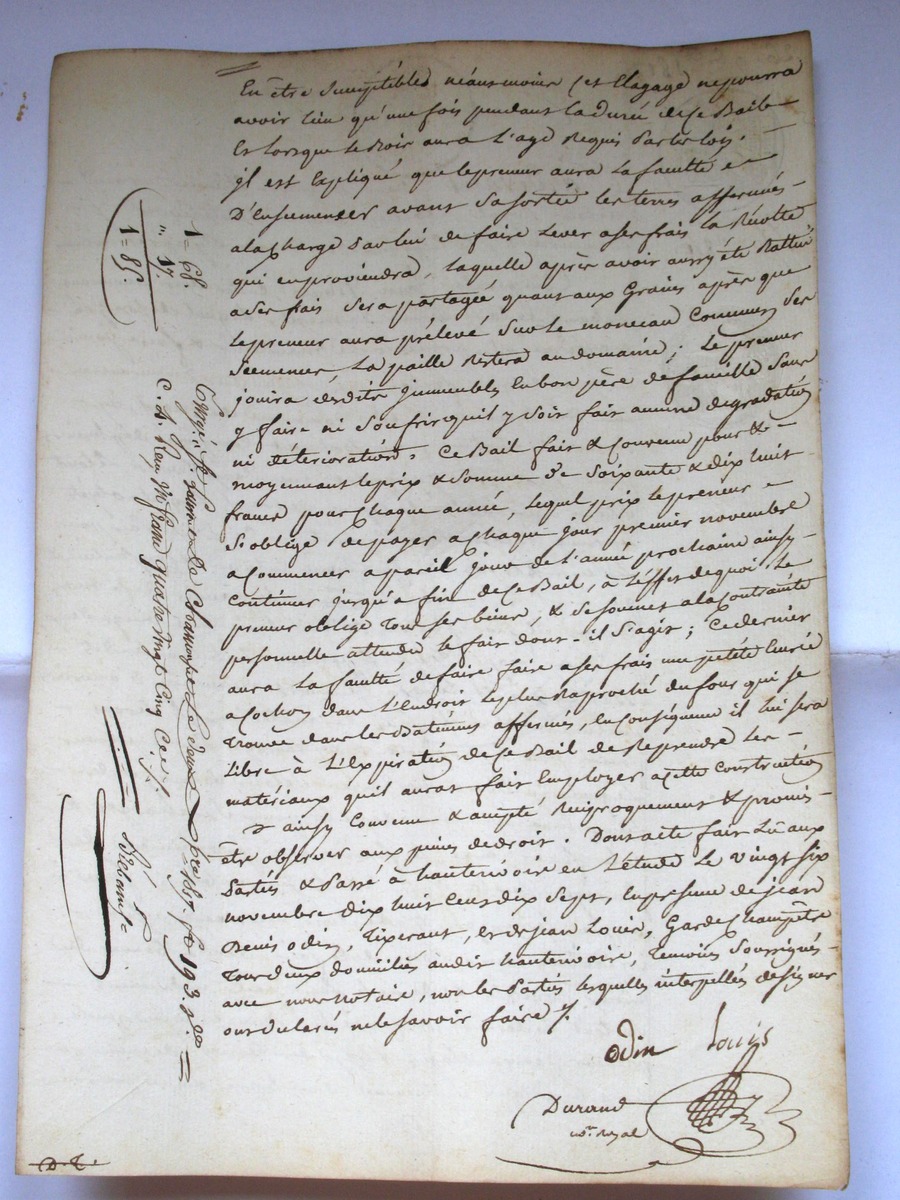 En être Suseptibles néansmoins Cet Elagage ne pourra
avoir lieu qu'une fois pendant la durée de Ce Bail
Et lorsque le Bois aura L'age Requis Par les lois.
il est Expliqué que le preneur aura La faculté
D'Ensemenser avant Sa Sortie les terres affermés
a la Charge par lui de faire Lever a ses frais la Récolte
qui en proviendra, laquelle après avoir aussy été Battue
a Ses frais Sera partagée quant aux Grains après que
le preneur aura prélevé Sur le monceau Commun Ses
Semences, La paille Restera au domaine; Le preneur
jouira desdits Immeubles En bon père de famille Sans
y faire ni Soufrir qu'il y Soit fait aucune dégradation
ni déterioration. Ce Bail fait & Convenu pour &
moyennant le prix & Somme de Soixante & dix huit
francs pour Chaque année, lequel prix le preneur
S'oblige de payer a Chaque jour premier novembre
a Commencer a pareil jour de l'année prochaine ainsy
Continuer jusqu'a fin de Ce Bail, à l'éffet de quoi Le
preneur oblige tous Ses biens, & Se Soumet a la Contrainte
personnelle attendu le fait dont il S'agit; Ce dernier
aura La faculté de faire faire a Ses frais une petite
a Cochon dans L'Endroit le plus Raproché du four qui Se
trouve dans les Batimens affermés, En Conséquence il lui Sera
Libre à L'Expiration de Ce Bail de Reprendre Les
matériaux qu'il aurat fait Employer a Cette Construction
ainsy Convenu & accepté Réciproquement & promis
être observer aux peines de droit. Dont acte fait Lû aux
Partiés & Passé à hauterivoire en L'étude Le Vingt Six
novembre dix huit Cent dix Sept, En présence de jean
Denis odin, Tixerant, Et de jean Louis, Garde Champêtre
Tous deux domiciliés audit hauterivoire, temoins Soussignés
avec nous notaire, non les Partiés lesquelles interpellés de Signer
ont déclarés ne le Savoir faire /.
odin Louis
Durand
no.re Royal
D. L.
1 = 68.
" 17.
1 = 85.
a S.t Laurent De Chamousset Le deux 1817. f.o 193. R.o
C. 4. Reçu Un franc quatre Vingt Cinq Ces /.